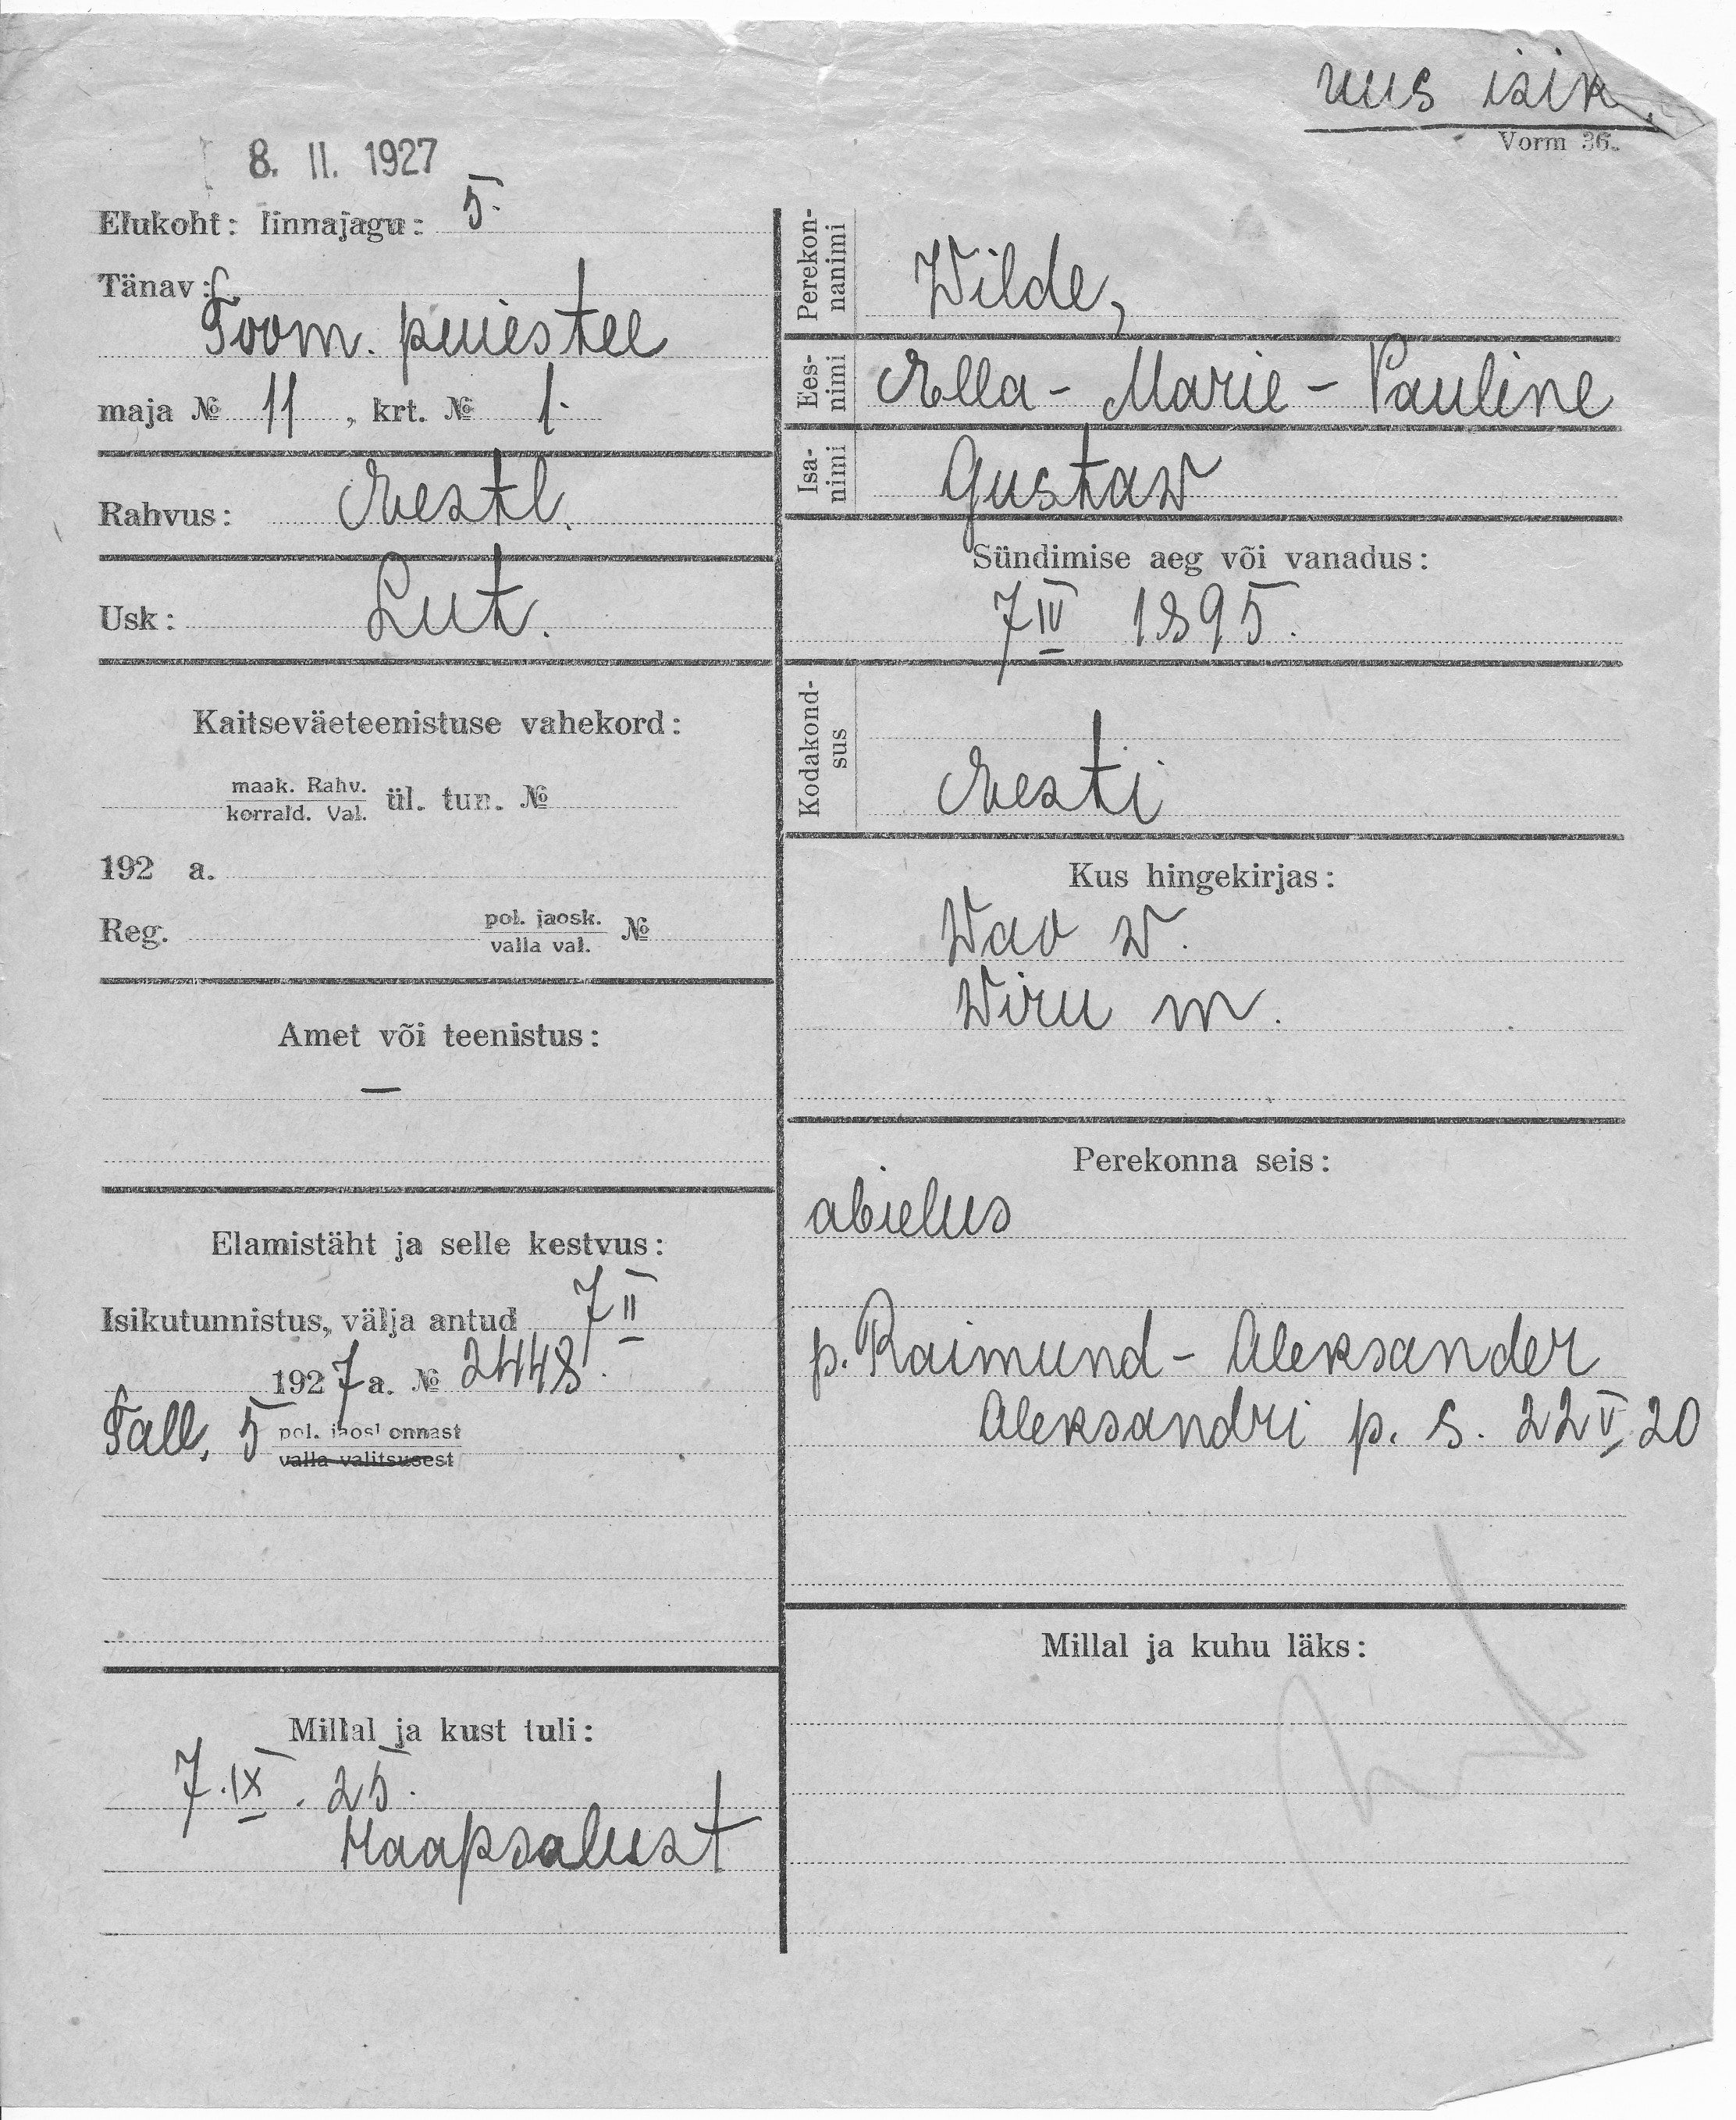 uus isik.
Vorm 36.
8. II. 1927
Elukoht: linnajagu: 5.
Tänav:
Toom. puiestee
maja № 11, krt. № 1.
Rahvus: Eestl.
Usk: Lut.
Kaitseväeteenistuse vahekord:
maak. Rahv.
korrald. Val.
ül. tun. №
192 a.
Reg.
pol. jaosk.
valla val.
№
Amet või teenistus:
—
Elamistäht ja selle kestvus:
Isikutunnistus, välja antud 7 II
1927 a. № 2448.
Tall. 5 pol. jaoskonnast
valla valitsusest
Millal ja kust tuli:
7. IX. 25.
Haapsalust
Perekon-
nanimi
Wilde,
Ees-
nimi
Ella - Marie - Pauline
Isa-
nimi
Gustaw
Sündimise aeg või vanadus:
7 IV 1895.
Kodakond-
sus
Eesti
Kus hingekirjas:
Wao w.
Wiru m.
Perekonna seis:
abielus
p. Raimund - Aleksander
Aleksandri p. s. 22 V 20
Millal ja kuhu läks: